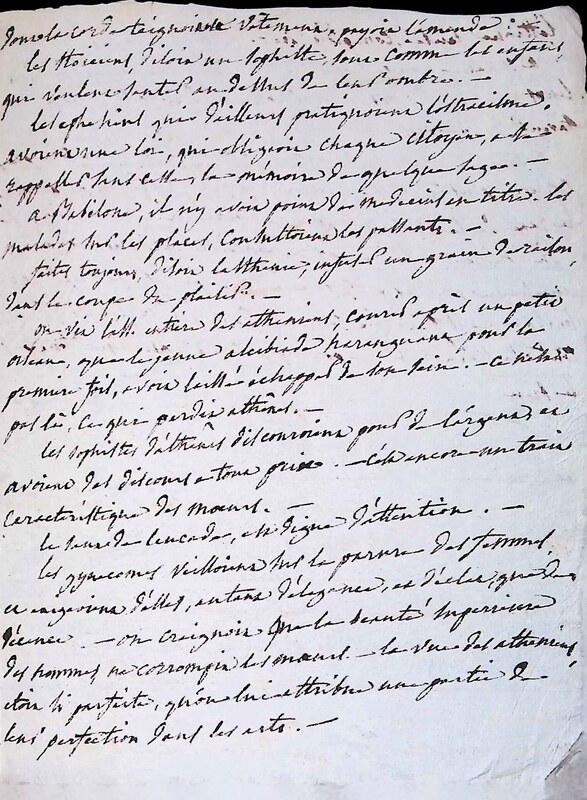 dont la corde teignoit le vetement, payoit l'amende.
les stoiciens, disoit un sophiste, sont comme les enfans,
qui veulent sauter au dessus de leur ombre. —
les atheniens qui d'ailleurs pratiquoient l'ostracisme,
avoient une loi, qui obligeoit chaque citoyen, a se
rappeller sans cesse, la mémoire de quelque sage. —
a Babilone, il n'y avoit point de medecins en titre. les
malades sur les places, consultoient les passants. —
faites toujours, disoit lasthenie, infuser un grain de raison,
dans la coupe du plaisir. —
on vit l'élite entiere des atheniens, courir après un petit
oiseau, que le jeune alcibiade haranguant pour la
premiere fois, avoit laissé échapper de son sein. — ce n'étoit
pas là, ce qui perdit athênes. —
les sophistes d'athênes discouroient pour de l'argent, et
avoient des discours a tout prix. — C'est encore un trait
caracteristique des mœurs. —
le saut de leucade, est digne d'attention. —
les gynecomes veilloient sur la parure des femmes,
et exigeoient d'elles, autant d'élégance, et d'éclat, que de
décence — on craignoit que la beauté superieure
des hommes ne corrompit les mœurs — la vue des atheniens,
étoit si parfaite, qu'on lui attribue une partie de
leur perfection dans les arts. —